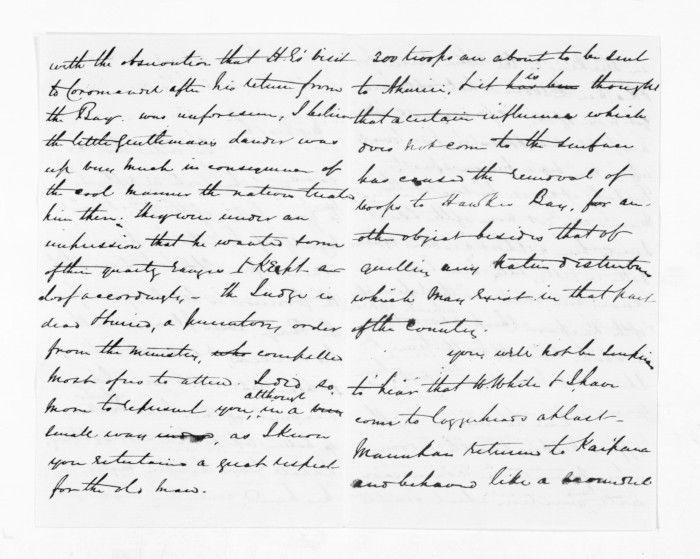 with the observation that H.E's visit
to Coromandel after his return from
the Bay was unforeseen, I believe
the little gentleman's dander was
up very much in consequence of
the cool manner the natives treated
him there. They were under an
impression that he wanted some
of their quartz ranges & kept a-
loof accordingly - the Judge is
dead & buried, a peremptory order
from the minister, who compelled
most of us to attend. I did so
more to represent you, although in a very
small way, as I knew
you entertained a great respect
for the old man.
200 troops are about to be sent
to Ahuriri, but it is thought
that a certain influence which
does not come to the surface
has caused the removal of
troops to Hawkes Bay, for an-
other object besides that of
quelling any Native disturbance
which may exist in that part
of the country.
you will not be surprised
to hear that W. White & I have
come to loggerheads at last -
Manuhau returned to Kaipara
and behaved like a scoundrel